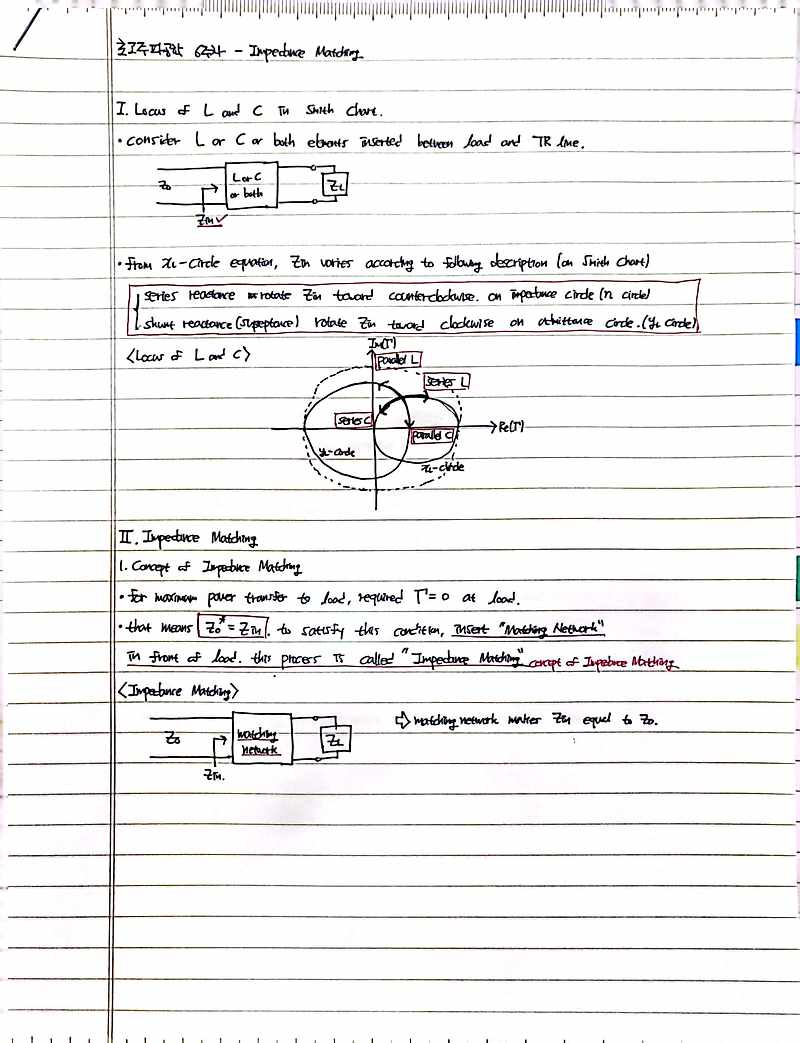 초고주파공학 6주차 - Impedance Matching
I. Locus of L and C in Smith Chart.
• consider L or C or both elements inserted between load and TR line.
Z₀
L or C
or both
Z_L
Z_in ✓
• from z_L-circle equation, Z_in varies according to following description (on Smith Chart)
series reactance rotate Z_in toward counterclockwise. on impedance circle (r_L circle)
shunt reactance (suceptance) rotate Z_in toward clockwise on admittance circle. (y_L circle)
<Locus of L and C>
Im(Γ)
parallel L
series L
series C
Re(Γ)
parallel C
y_L-circle
z_L-circle
II. Impedance Matching
1. Concept of Impedance Matching
• for maximum power transfer to load, required Γ = 0 at load.
• that means Z₀* = Z_in. to satisfy this condition, insert "Matching Network"
in front of load. this process is called "Impedance Matching" concept of Impedance Matching
<Impedance Matching>
Z₀
matching
network
Z_L
Z_in.
⇨ matching network makes Z_in equal to Z₀.